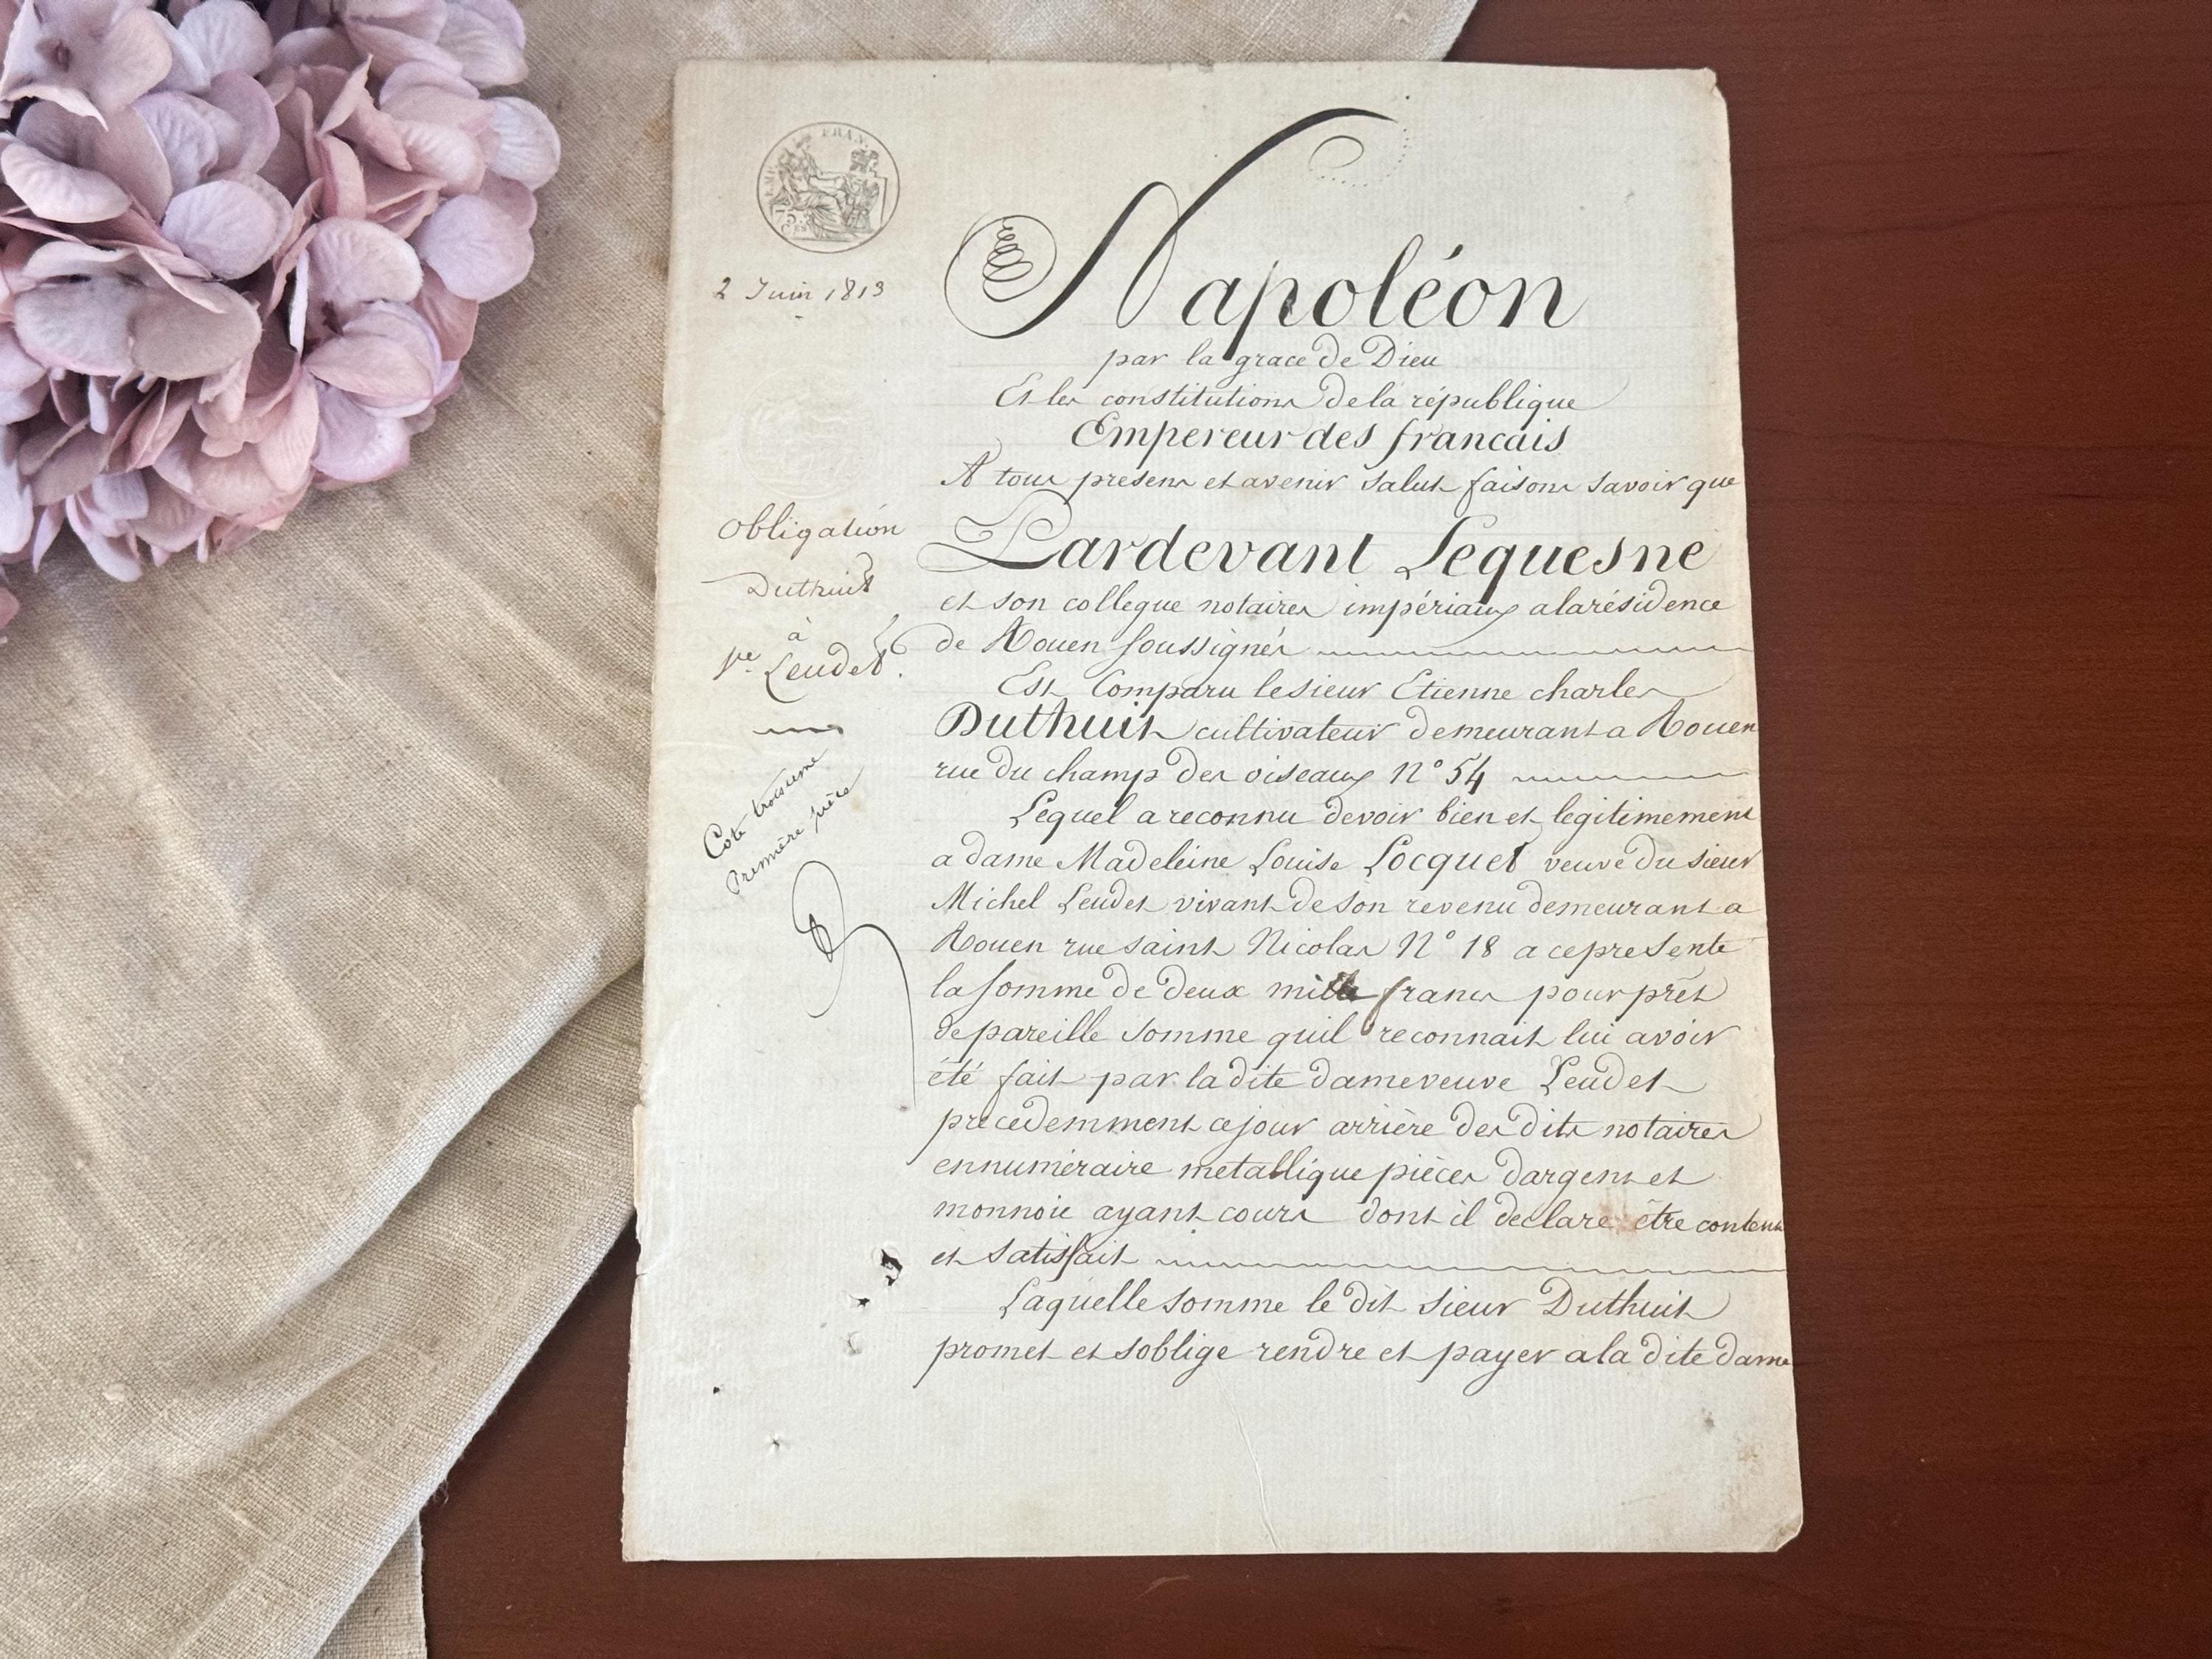 EMP. FRAN.
75.
CES
2 Juin 1813
Napoléon
par la grace de Dieu
Et les constitutions de la république
Empereur des francais
A tous presens et avenir salut faisons savoir que
Obligation
Duthuit
à
Ve Leudet.
Cote troisieme
Première pièce
Pardevant Lequesne
et son collegue notaires impériaux a la résidence
de Rouen soussignés
Est Comparu le sieur Etienne charles
Duthuit cultivateur demeurant a Rouen
rue du champ des oiseaux N° 54
Lequel a reconnu devoir bien et legitimement
a dame Madeleine Louise Locquet veuve du sieur
Michel Leudet vivant de son revenu demeurant a
Rouen rue saint Nicolas N° 18 a ce presente
la somme de deux mille francs pour prêt
de pareille somme quil reconnait lui avoir
été fait par la dite dame veuve Leudet
precedemment ce jour arrière des dits notaires
en numéraire metallique pièces dargent et
monnoie ayant cours dont il declare être content
et satisfait
Laquelle somme le dit sieur Duthuit
promet et soblige rendre et payer a la dite dame